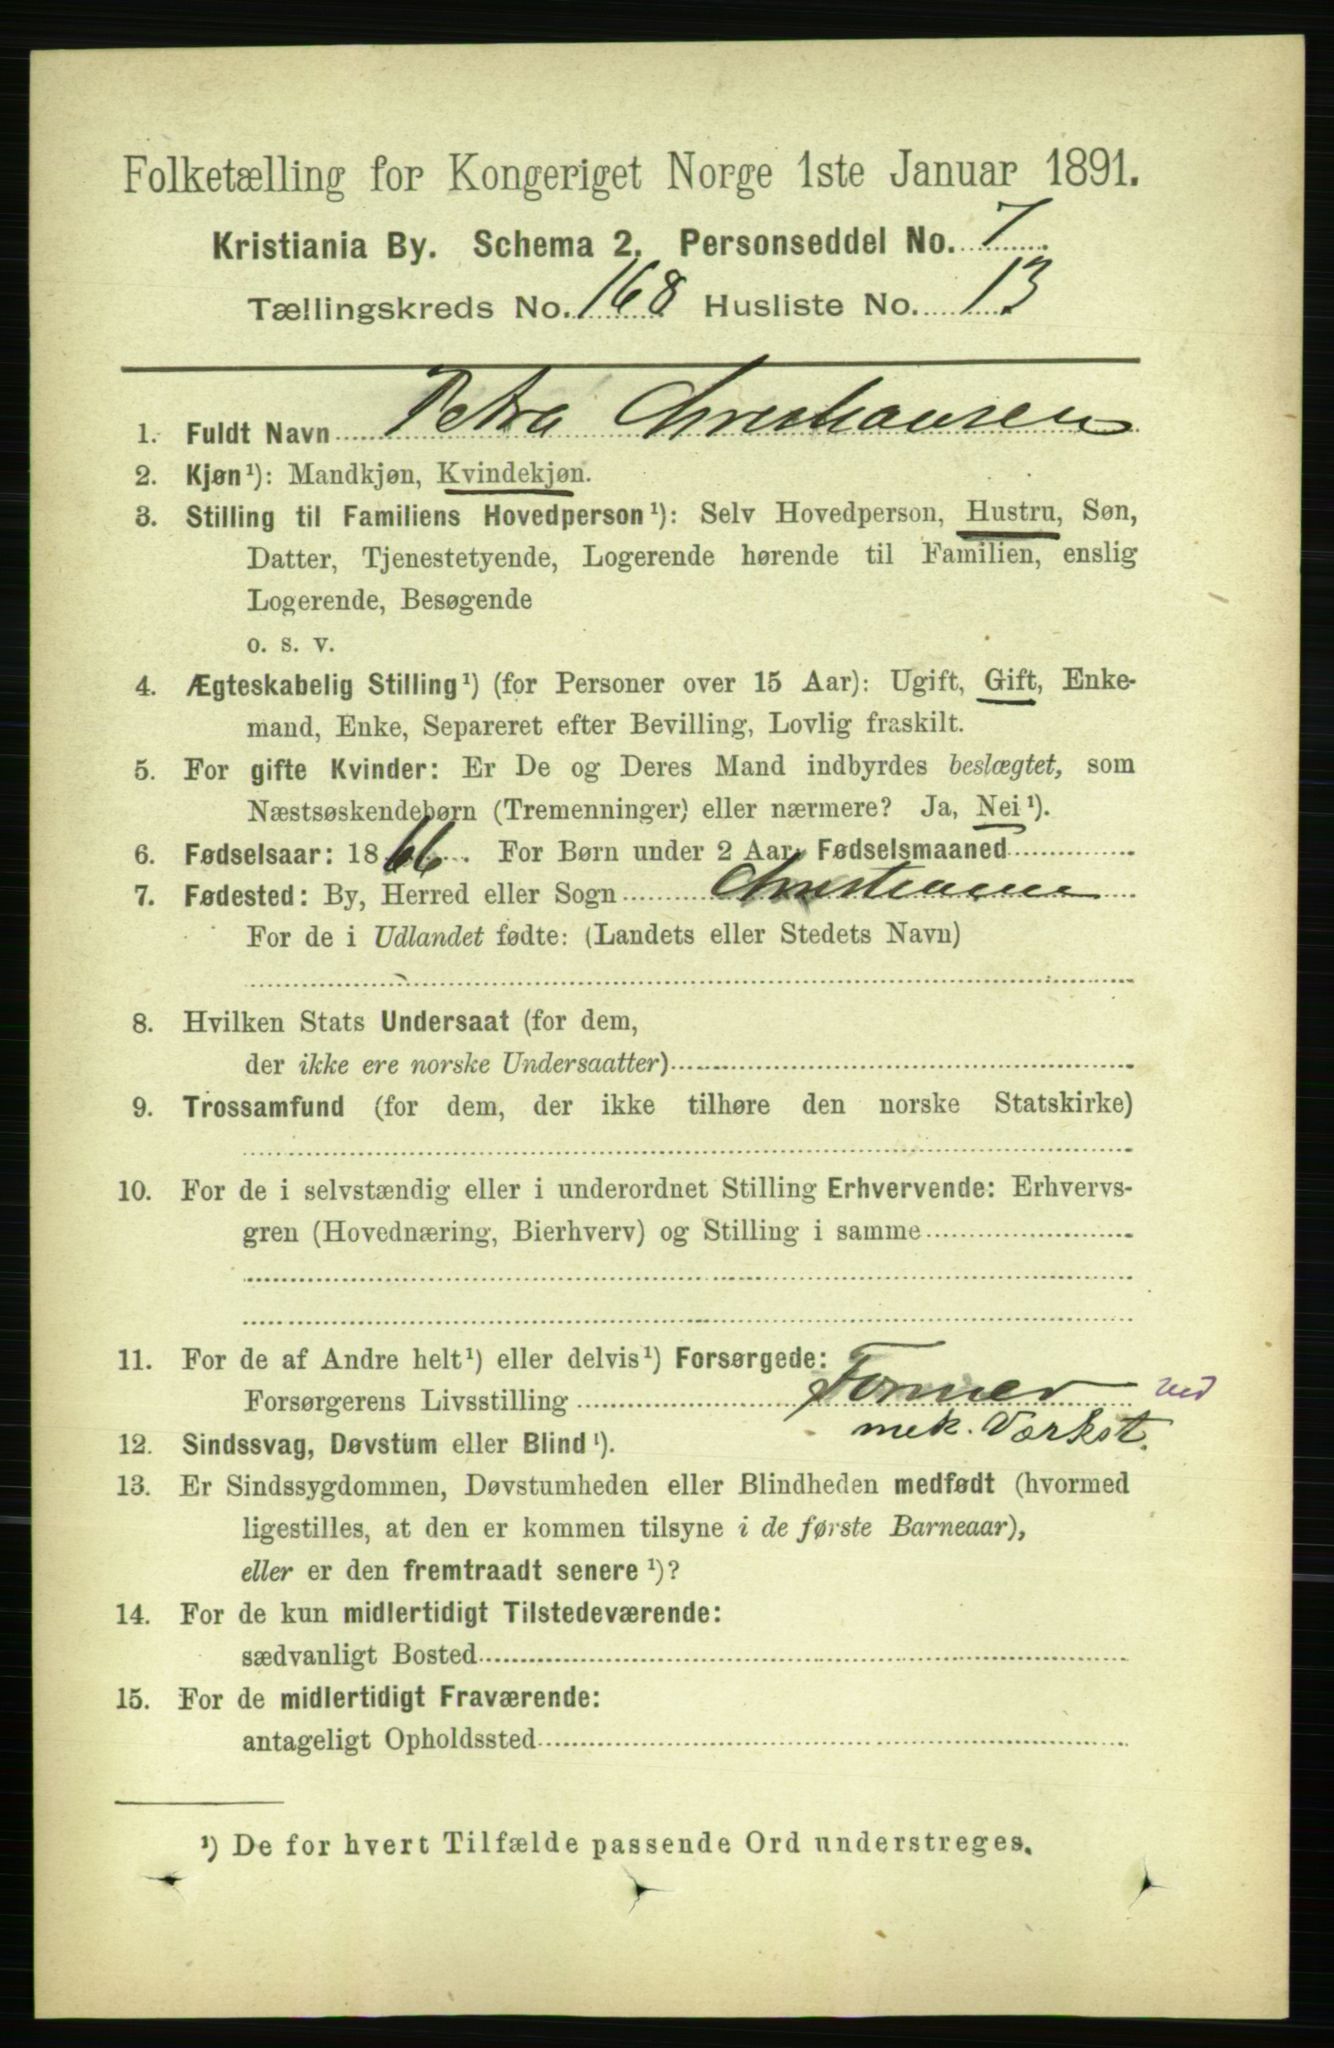 Folketælling for Kongeriget Norge 1ste Januar 1891.
Kristiania By. Schema 2. Personseddel No. 7
Tællingskreds No. 168 Husliste No. 13
1. Fuldt Navn Petra Christiansen
2. Kjøn¹): Mandkjøn, Kvindekjøn.
3. Stilling til Familiens Hovedperson¹): Selv Hovedperson, Hustru, Søn,
Datter, Tjenestetyende, Logerende hørende til Familien, enslig
Logerende, Besøgende
o. s. v.
4. Ægteskabelig Stilling¹) (for Personer over 15 Aar): Ugift, Gift, Enke-
mand, Enke, Separeret efter Bevilling, Lovlig fraskilt.
5. For gifte Kvinder: Er De og Deres Mand indbyrdes beslægtet, som
Næstsøskendebørn (Tremenninger) eller nærmere? Ja, Nei¹).
6. Fødselsaar: 1866. For Børn under 2 Aar, Fødselsmaaned
7. Fødested: By, Herred eller Sogn Christiania
For de i Udlandet fødte: (Landets eller Stedets Navn)
8. Hvilken Stats Undersaat (for dem,
der ikke ere norske Undersaatter)
9. Trossamfund (for dem, der ikke tilhøre den norske Statskirke)
10. For de i selvstændig eller i underordnet Stilling Erhvervende: Erhvervs-
gren (Hovednæring, Bierhverv) og Stilling i samme
11. For de af Andre helt¹) eller delvis¹) Forsørgede:
Forsørgerens Livsstilling Former ved
mek. Værkst.
12. Sindssvag, Døvstum eller Blind¹).
13. Er Sindssygdommen, Døvstumheden eller Blindheden medfødt (hvormed
ligestilles, at den er kommen tilsyne i de første Barneaar),
eller er den fremtraadt senere¹)?
14. For de kun midlertidigt Tilstedeværende:
sædvanligt Bosted
15. For de midlertidigt Fraværende:
antageligt Opholdssted
¹) De for hvert Tilfælde passende Ord understreges.